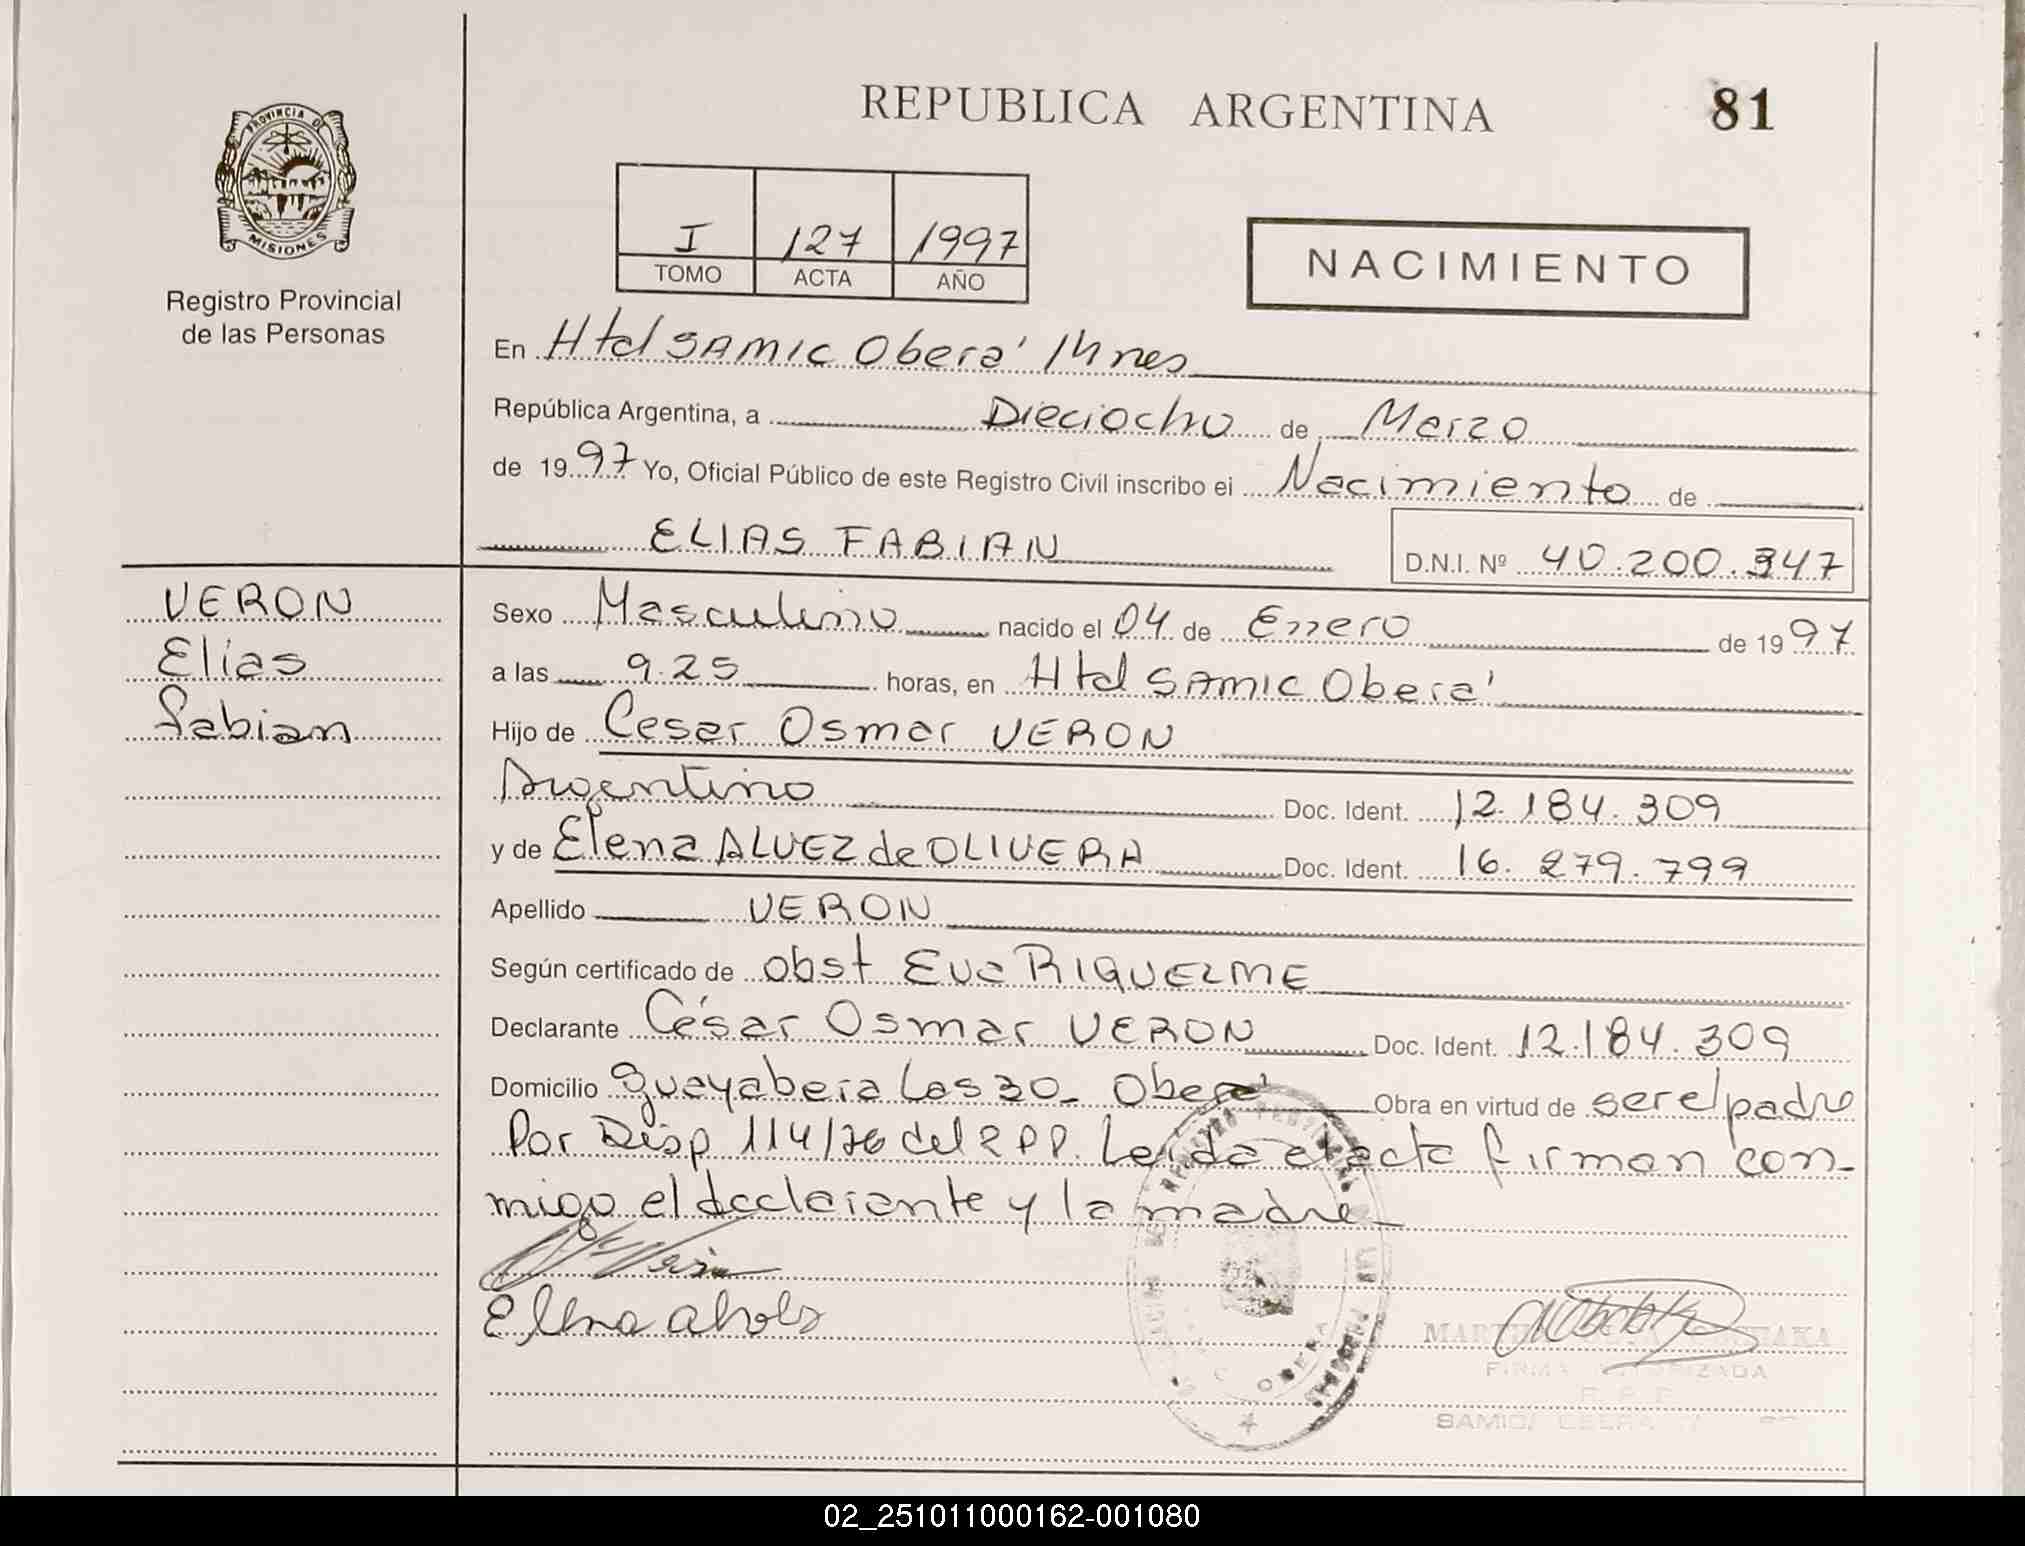 REPUBLICA ARGENTINA
81
PROVINCIA DE
MISIONES
Registro Provincial
de las Personas
I 127 1997
TOMO ACTA AÑO
NACIMIENTO
En Htal SAMIC Oberá Mnes
República Argentina, a Dieciocho de Marzo
de 1997 Yo, Oficial Público de este Registro Civil inscribo el Nacimiento de
ELIAS FABIAN D.N.I. Nº 40.200.347
VERON
Elias
fabian
Sexo Masculino nacido el 04 de Enero de 1997
a las 9.25 horas, en Htal SAMIC Oberá
Hijo de Cesar Osmar VERON
Argentino Doc. Ident. 12.184.309
y de Elena ALVEZ de OLIVERA Doc. Ident. 16.279.799
Apellido VERON
Según certificado de obst Eva RIQUELME
Declarante César Osmar VERON Doc. Ident. 12.184.309
Domicilio Guayabera Las 30_ Oberá Obra en virtud de ser el padre
Por Disp 114/76 del RPP. Leida el acta firman con-
migo el declarante y la madre_
Elena alves
OBERA
FIRMA AUTORIZADA
02_251011000162-001080